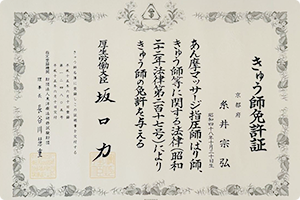 きゅう師免許証
京都府
糸井宗弘
昭和四十八年十月三十日生
あん摩マッサージ指圧師、はり師、
きゅう師等に関する法律(昭和
二十二年法律第二百十七号)により
きゅう師の免許を与える
厚生労働大臣 坂口力
理事長 長谷川慧重